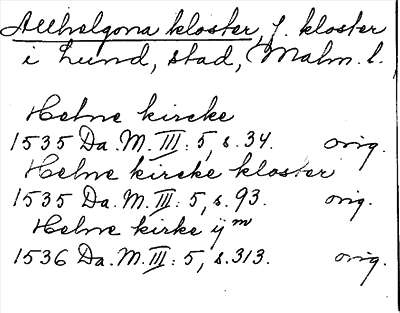 Allhelgona kloster, f. kloster
i Lund, stad, Malm. l.
Helne kircke
1535 Da. M. III: 5, s. 34. orig.
Helne kircke kloster
1535 Da. M. III: 5, s. 93. orig.
Helne kirke ij m
1536 Da. M. III: 5, s. 313. orig.